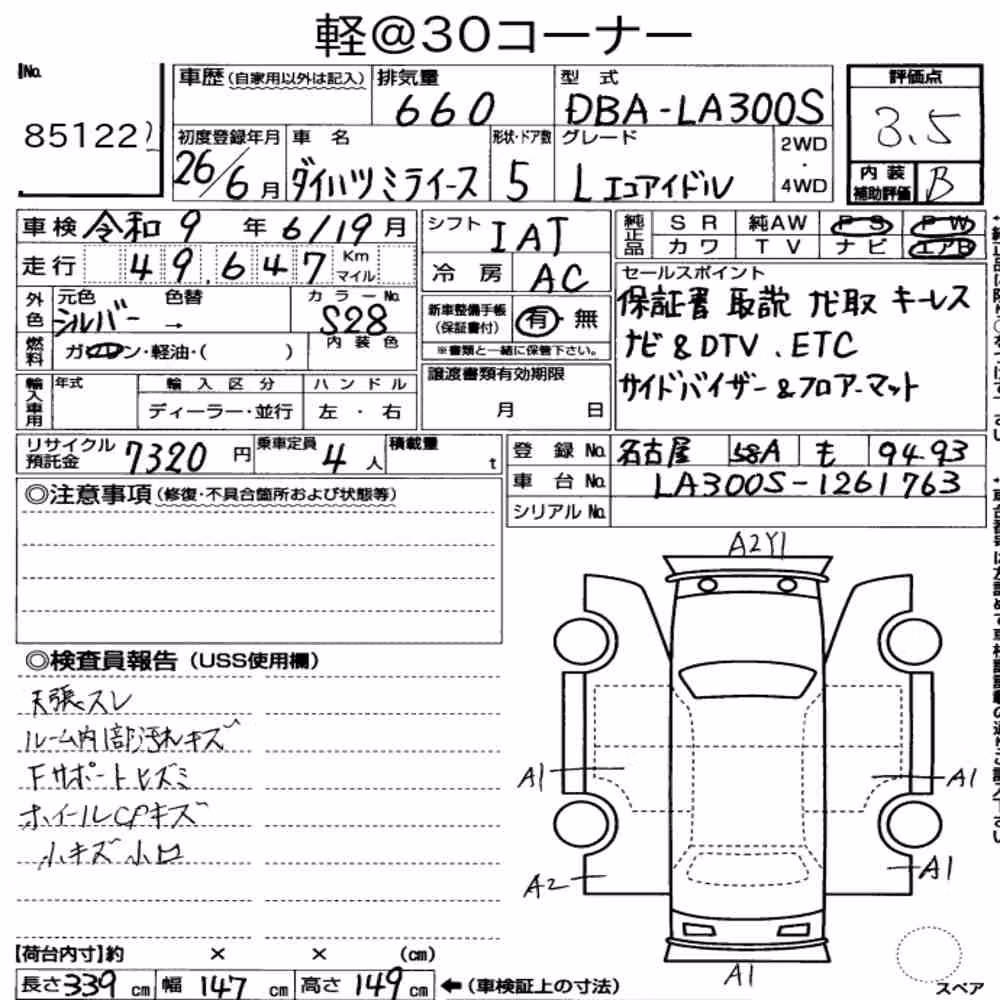 軽@30コーナー
No.
85122
車歴(自家用以外は記入)
排気量
660
型 式
DBA-LA300S
評価点
3.5
初度登録年月
26/6月
車 名
ダイハツミライース
形状・ドア数
5
グレード
Lエコアイドル
2WD
・
4WD
内 装
補助評価
B
車検 令和9年6/19月
シフト IAT
純正品
SR 純AW PS PW
カワ TV ナビ エアB
走行 49,647 Km
マイル
冷 房 AC
セールスポイント
保証書 取説 ナビ取 キーレス
ナビ&DTV.ETC
サイドバイザー&フロアーマット
外色
元色 色替
シルバー →
カラーNo.
S28
内装色
新車整備手帳
(保証書付)
有・無
※書類と一緒に保管下さい。
燃料
ガソリン・軽油・( )
輸入車用
年式
輸入区分
ディーラー・並行
ハンドル
左・右
譲渡書類有効期限
月 日
リサイクル
預託金
7320円
乗車定員
4人
積載量
t
登録No. 名古屋 58A も 94-93
車台No. LA300S-1261763
シリアルNo.
◎注意事項(修復・不具合箇所および状態等)
◎検査員報告(USS使用欄)
天張スレ
ルーム内部汚れキズ
Fサポートヒズミ
ホイールCPキズ
小キズ小凹
A2Y1
A1
A1
A2
A1
A1
スペア
【荷台内寸】約 × × (cm)
長さ339cm 幅147cm 高さ149cm ←(車検証上の寸法)